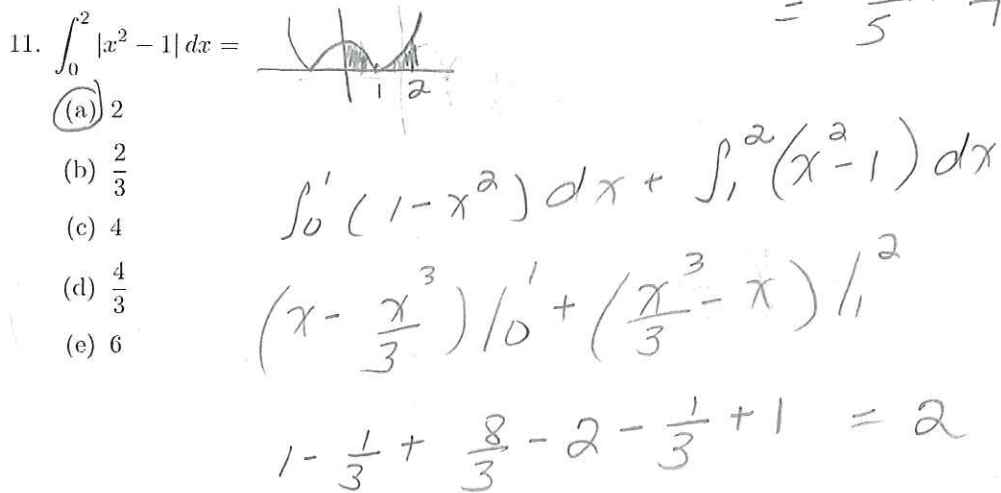 = —/5 7
11. ∫₀² |x² − 1| dx =
1 2
(a) 2
(b) 2/3
(c) 4
(d) 4/3
(e) 6
∫₀¹ (1-x²) dx + ∫₁² (x²-1) dx
(x - x³/3) /₀¹ + (x³/3 - x) /₁²
1 - 1/3 + 8/3 - 2 - 1/3 + 1 = 2